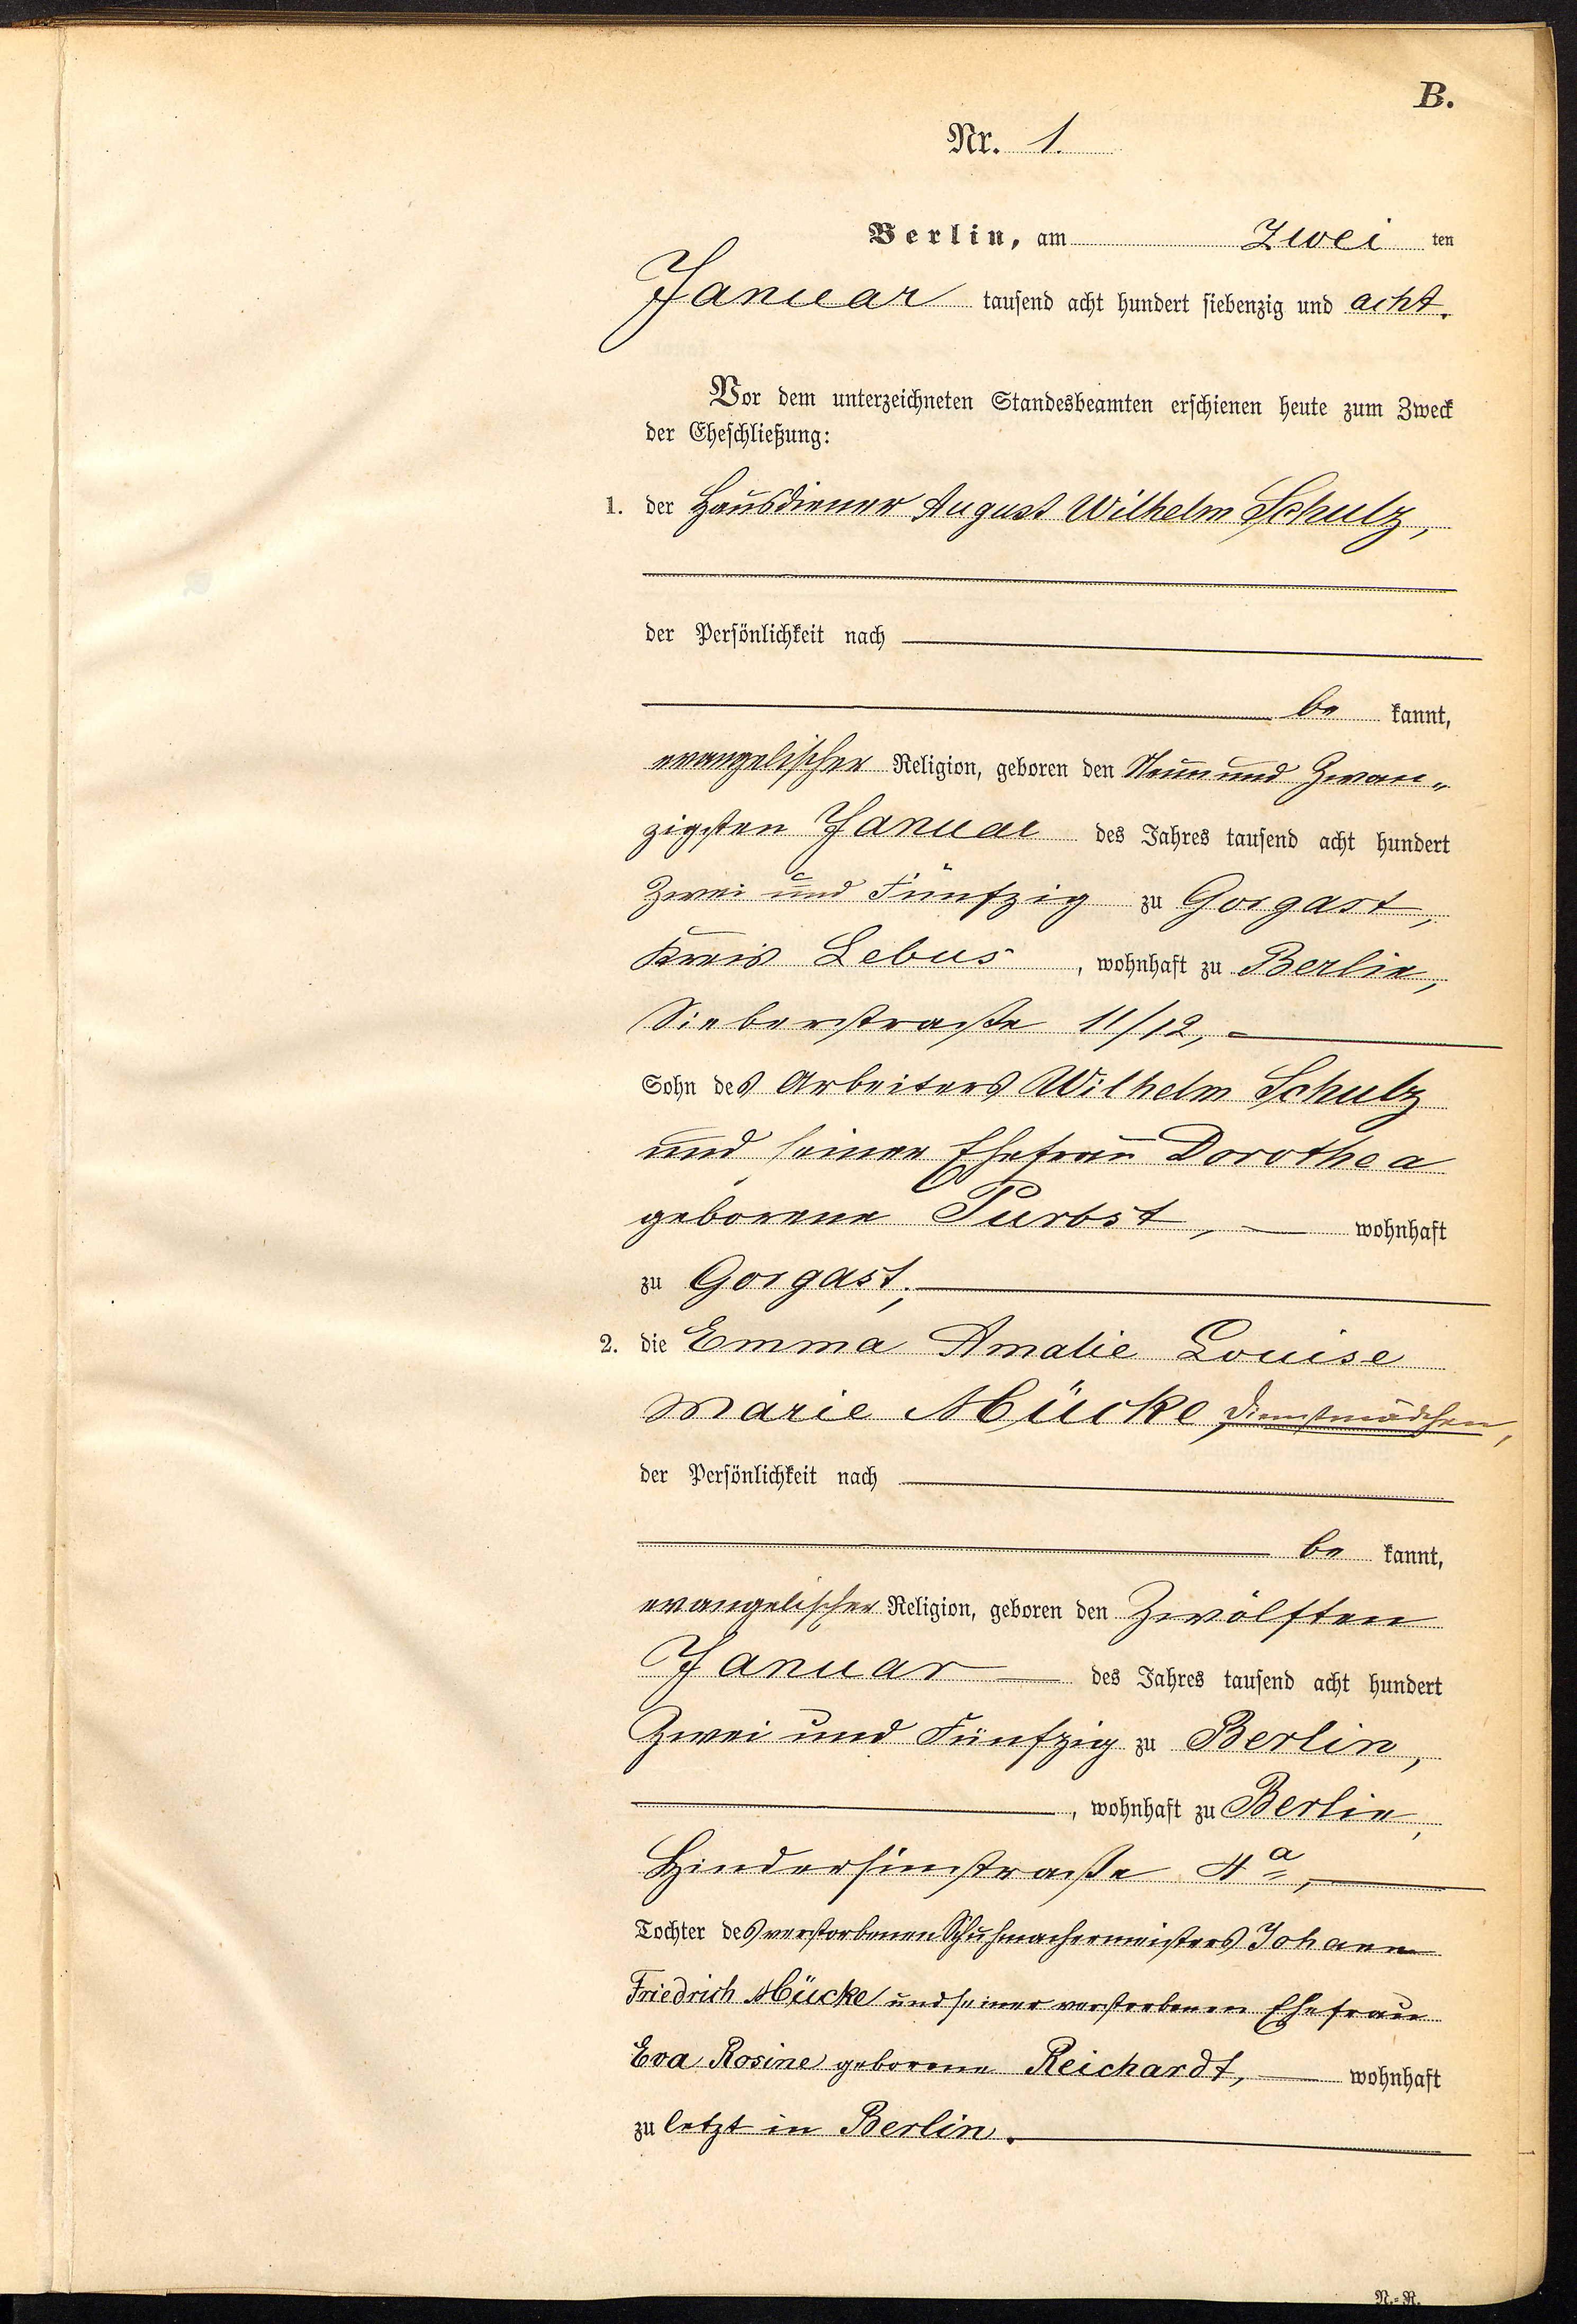 B.
Nr. 1.
Berlin, am Zwei ten
Januar tausend acht hundert siebenzig und acht.
Vor dem unterzeichneten Standesbeamten erschienen heute zum Zweck
der Eheschließung:
1. der Hausdiener August Wilhelm Schulz,
der Persönlichkeit nach
be kannt,
evangelischer Religion, geboren den Neun und Zwan„
zigsten Januar des Jahres tausend acht hundert
Zwei und Fünfzig zu Gorgast,
Kreis Lebus, wohnhaft zu Berlin,
Sieberstraße 11/12,
Sohn des Arbeiters Wilhelm Schulz
und seiner Ehefrau Dorothea
geborene Purbst, wohnhaft
zu Gorgast;
2. die Emma Amalie Louise
Marie Mücke, Dienstmädchen,
der Persönlichkeit nach
be kannt,
evangelischer Religion, geboren den Zwölften
Januar des Jahres tausend acht hundert
Zwei und Fünfzig zu Berlin,
, wohnhaft zu Berlin,
Hindersinstraße 4a,
Tochter des verstorbenen Schuhmachermeisters Johann
Friedrich Mücke und seiner verstorbenen Ehefrau
Eva Rosine geborene Reichardt, wohnhaft
zu letzt in Berlin.
N.-R.